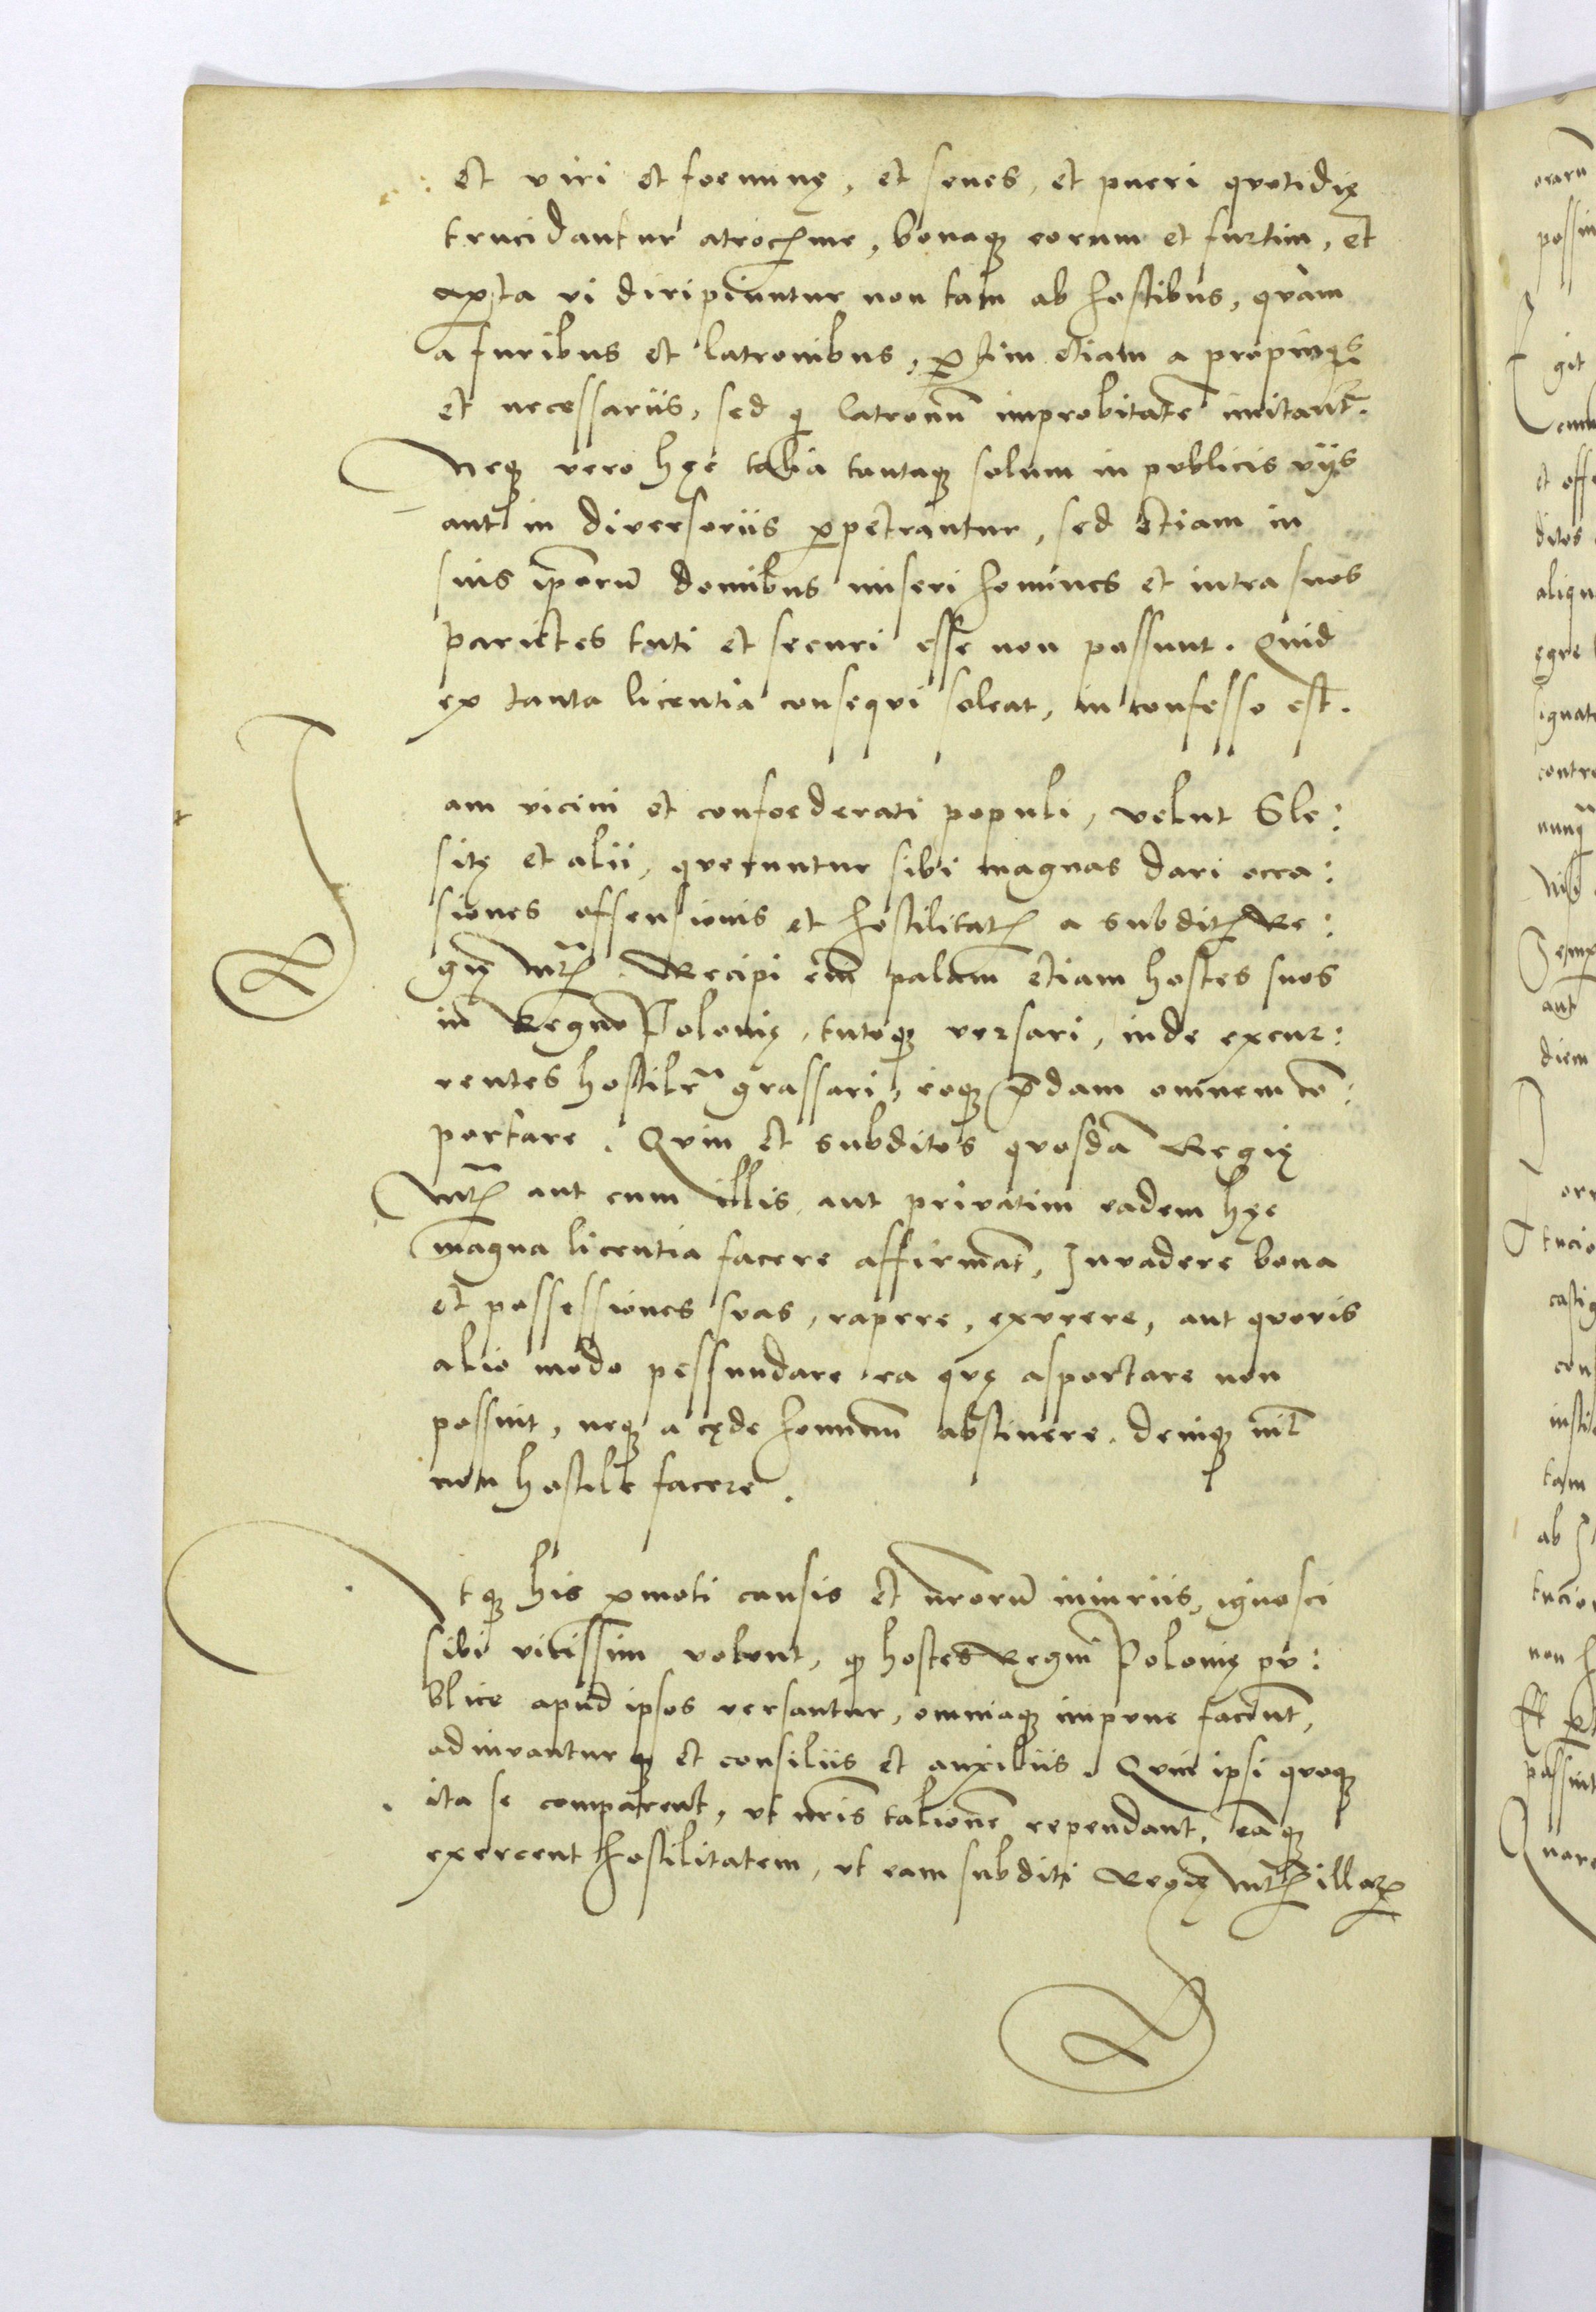 et viri et foeminę, et senes, et pueri quotidie
trucidantur atrociss.me, bonaqꝫ eorum et furtim, et
apꝑta vi diripiuntur non tam ab hostibus, quàm
a furibus et latronibus, ꝑtim etiam a propinqs
et necessariis, sed qi latronū improbitatē imitant.
Neqꝫ vero hęc talia tantaqꝫ solum in publicis vijs
aut in diversoriis ꝑpetrantur, sed etiam in
suis ipsorū domibus miseri homines et intra suos
parietes tuti et securi esse non possunt. Quid
ex tanta licentia consequi soleat, in confesso est.
Iam vicini et confoederati populi, velut Sle:
sitę et alii, queruntur sibi magnas dari occa:
siones offensionis et hostilitatꝭ a subditꝭ Re:
gię Mtꝭ. Recipi em̄ palàm etiam hostes suos
in Regno Polonię, tutoqꝫ versari, inde excur:
rentes hostilr̄ grassari, eoqꝫ p̄dam omnem cō:
portare. Quin et subditos quosdā Regię
Mtꝭ aut cum illis, aut privatim eadem hęc
magna licentia facere affirmāt, Invadere bona
et possessiones suas, rapere, exurere, aut quovis
alio modo pessundare ea quę asportare non
possint, neqꝫ a cęde hominum abstinere. deniqꝫ nil
non hostile facere.
Atqꝫ his ꝑmoti causis et nrorū iniuriis, ignosci
sibi vicissim volunt, qꝫ hostes Regni Polonię pu:
blice apud ipsos versantur, omniaqꝫ impune faciunt,
adiuvanturqꝫ et consiliis et auxiliis. Quin ipsi quoqꝫ
ita se comparent, ut nris talionē rependant, eāqꝫ
exerceant hostilitatem, ut eam subditi Regię Mtꝭ illaꝝ